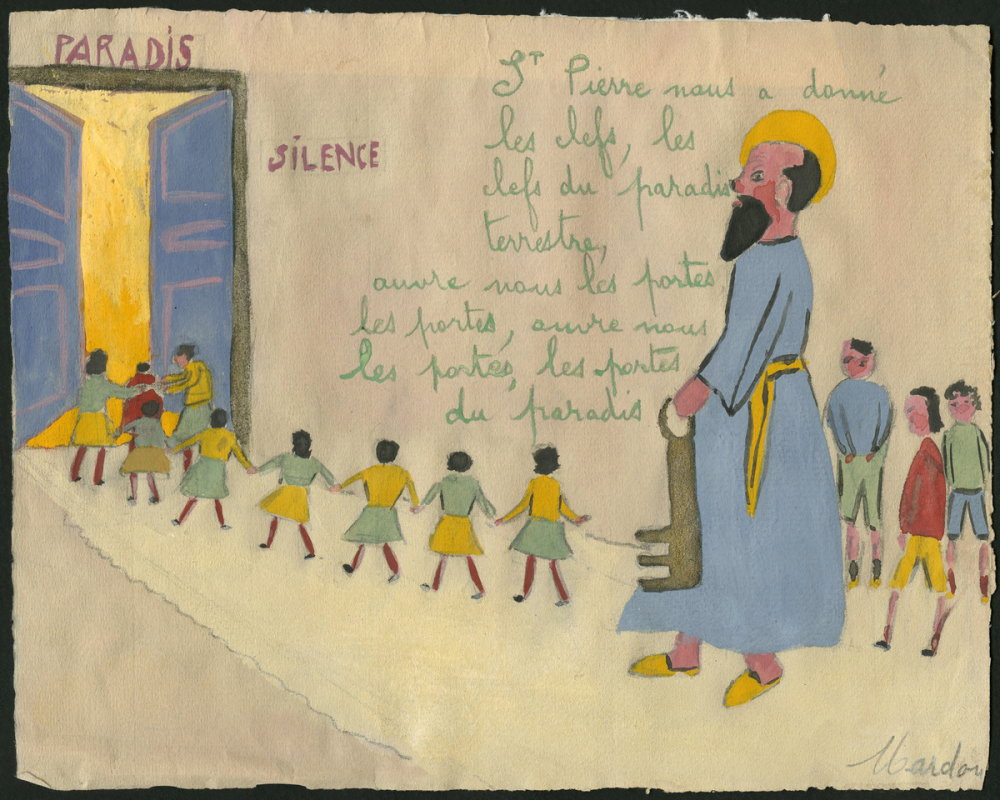 PARADIS
SILENCE
St Pierre nous a donné
les clefs, les
clefs du paradis
terrestre,
ouvre nous les portes,
les portes, ouvre nous
les portes, les portes
du paradis